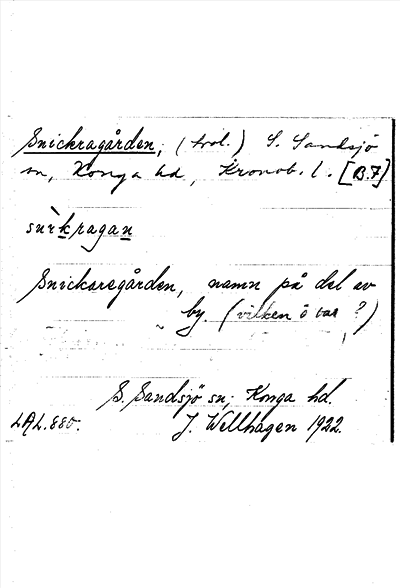 Snickragården, (trol.) S. Sandsjö
sn, Konga hd, Kronob. l. [B.7]
snìkragan
Snickaregården, namn på del av
by. (vilken å tas ?)
S. Sandsjö sn, Konga hd.
LAL.880. J. Wellhagen 1922.